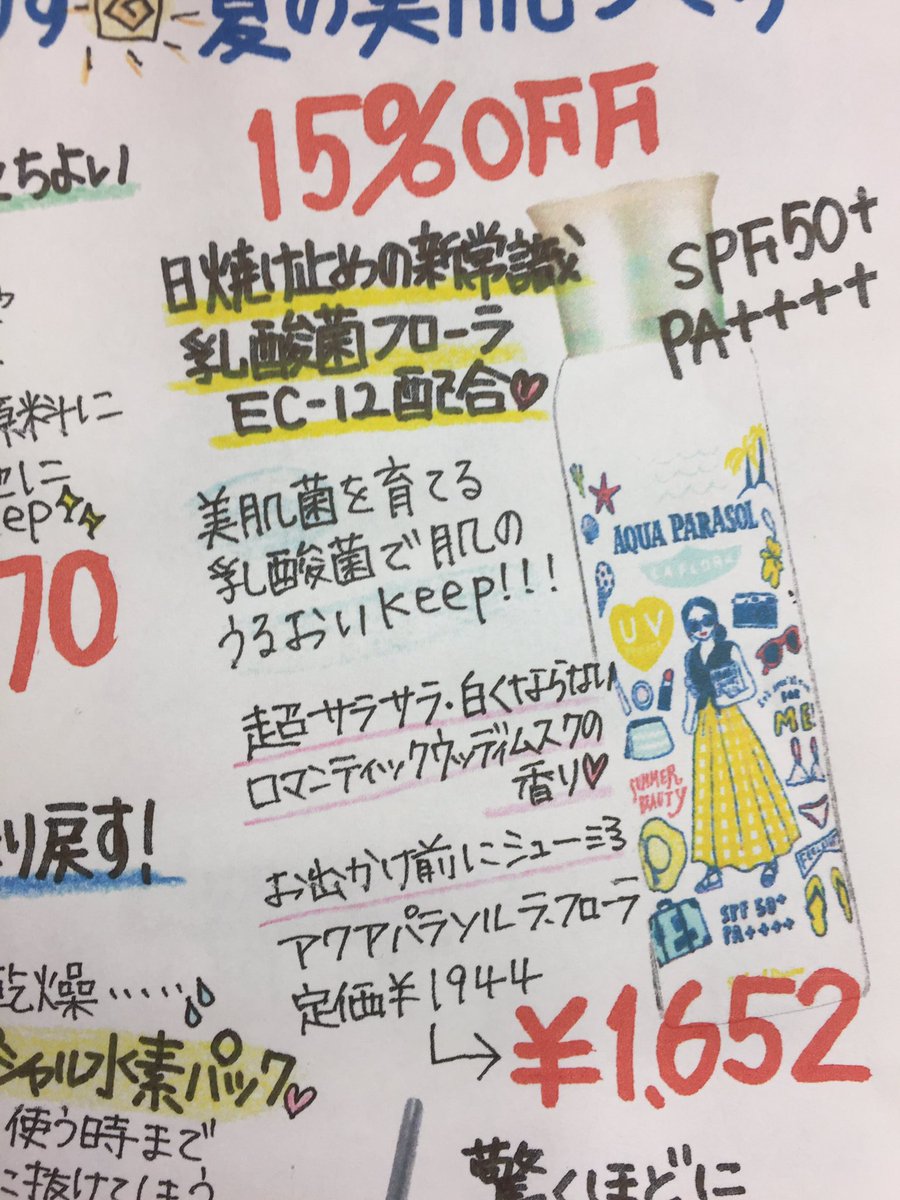 す 夏の美肌づくり
15%OFF
ちよい
日焼け止めの新常識
乳酸菌フローラ
EC-12配合♡
SPF50+
PA++++
原料に
keep
70
美肌菌を育てる
乳酸菌で肌の
うるおいkeep!!!
超サラサラ・白くならない
ロマンティックウッディムスクの
香り♡
お出かけ前にシュー
アクアパラソルラ・フローラ
定価¥1944
→¥1,652
AQUA PARASOL
LA FLORA
UV
ME
SUMMER
BEAUTY
SPF 50+
PA++++
り戻す!
乾燥……
シャル水素パック♡
使う時まで
に抜けてしまう
驚くほどに